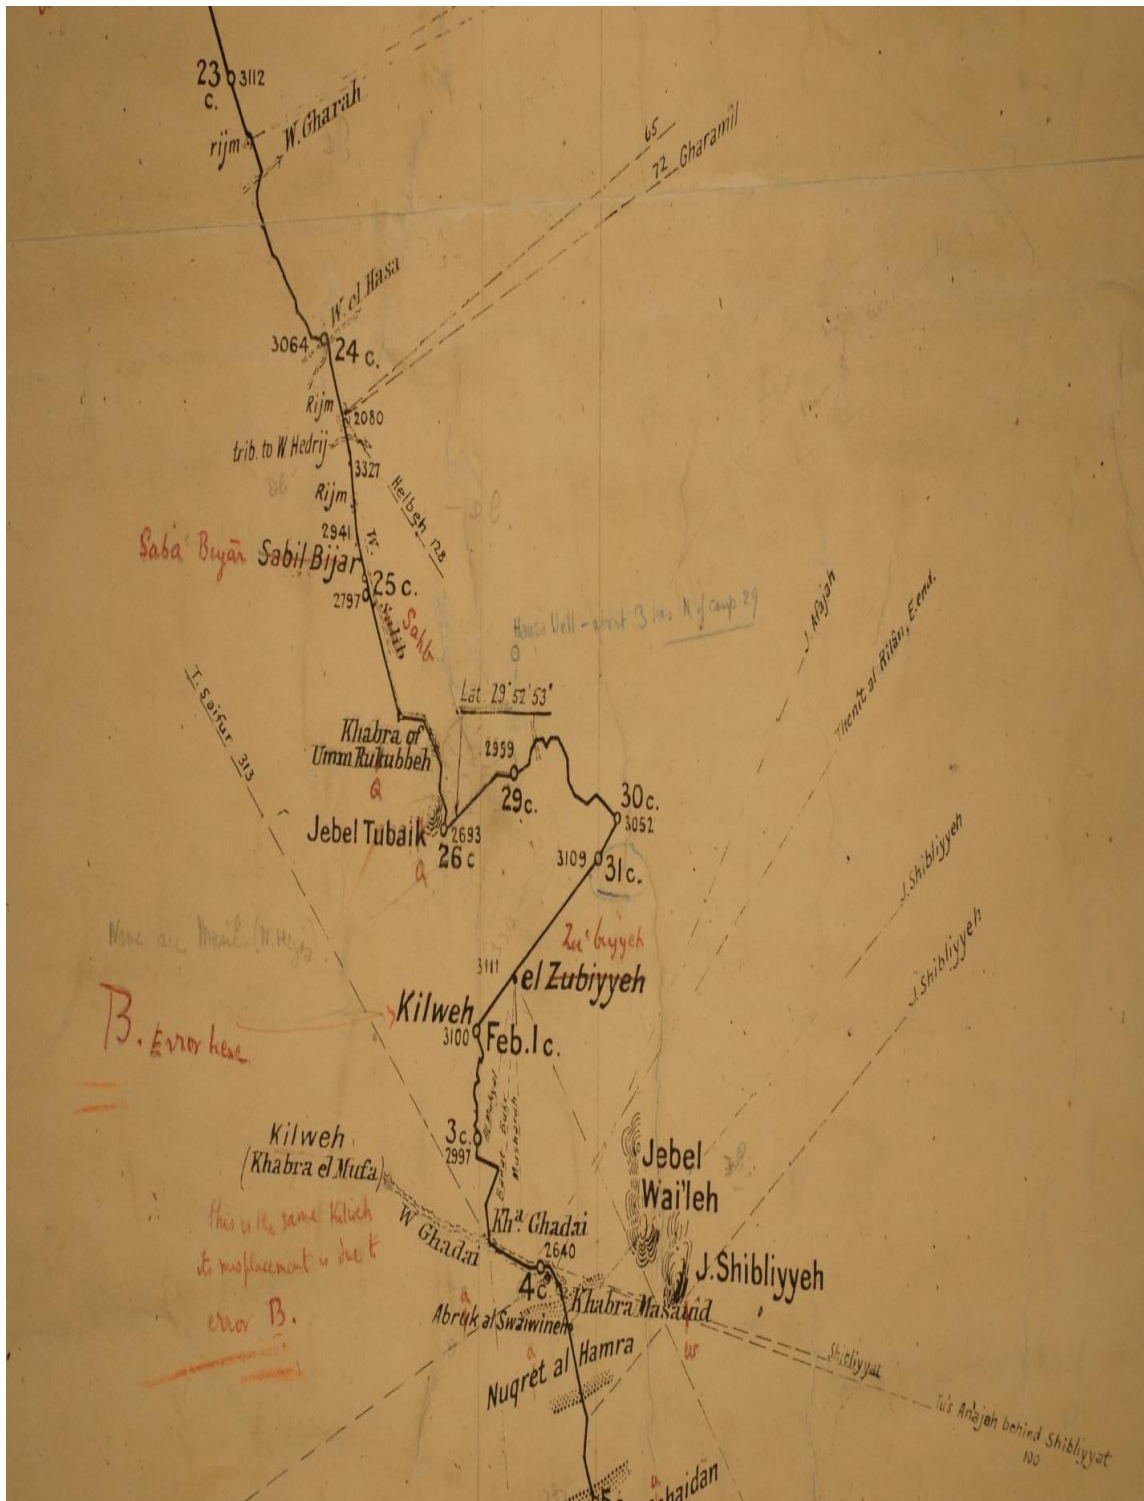 23 3112
c.
rijm
W. Gharah
65
72 Gharamil
W. el Hasa
3064 24 c.
Rijm
2080
trib. to W Hedrij
3327
Rijm
Helbeh 128
2941
W.
Saba Biyār Sabil Bijar
25 c.
2797
Sahb
Hausa Well - about 3 hrs N of camp 29
J. Afajah
Thenit al Rilân, E.end.
T. Saifur 313
Lat. 29° 52' 53"
Khabra of
Umm Rukubbeh
2959
29c.
30c.
3052
Jebel Tubaik
2693
26 c
3109
31c.
J. Shibliyyeh
J. Shibliyyeh
Zu'biyyeh
3111
el Zubiyyeh
Kilweh
3100 Feb. 1 c.
B. Error here
3c.
2997
Musharah
Kilweh
(Khabra el Mufa)
Jebel
Wai'leh
this is the same Kilweh
its misplacement is due to
error B.
W Ghadai
Khª. Ghadai
2640
4c
J. Shibliyyeh
Khabra Masawid
Abruk al Swaiwineh
Nuqret al Hamra
w
Shibliyyat
Tu's An'ajah behind Shibliyyat
100